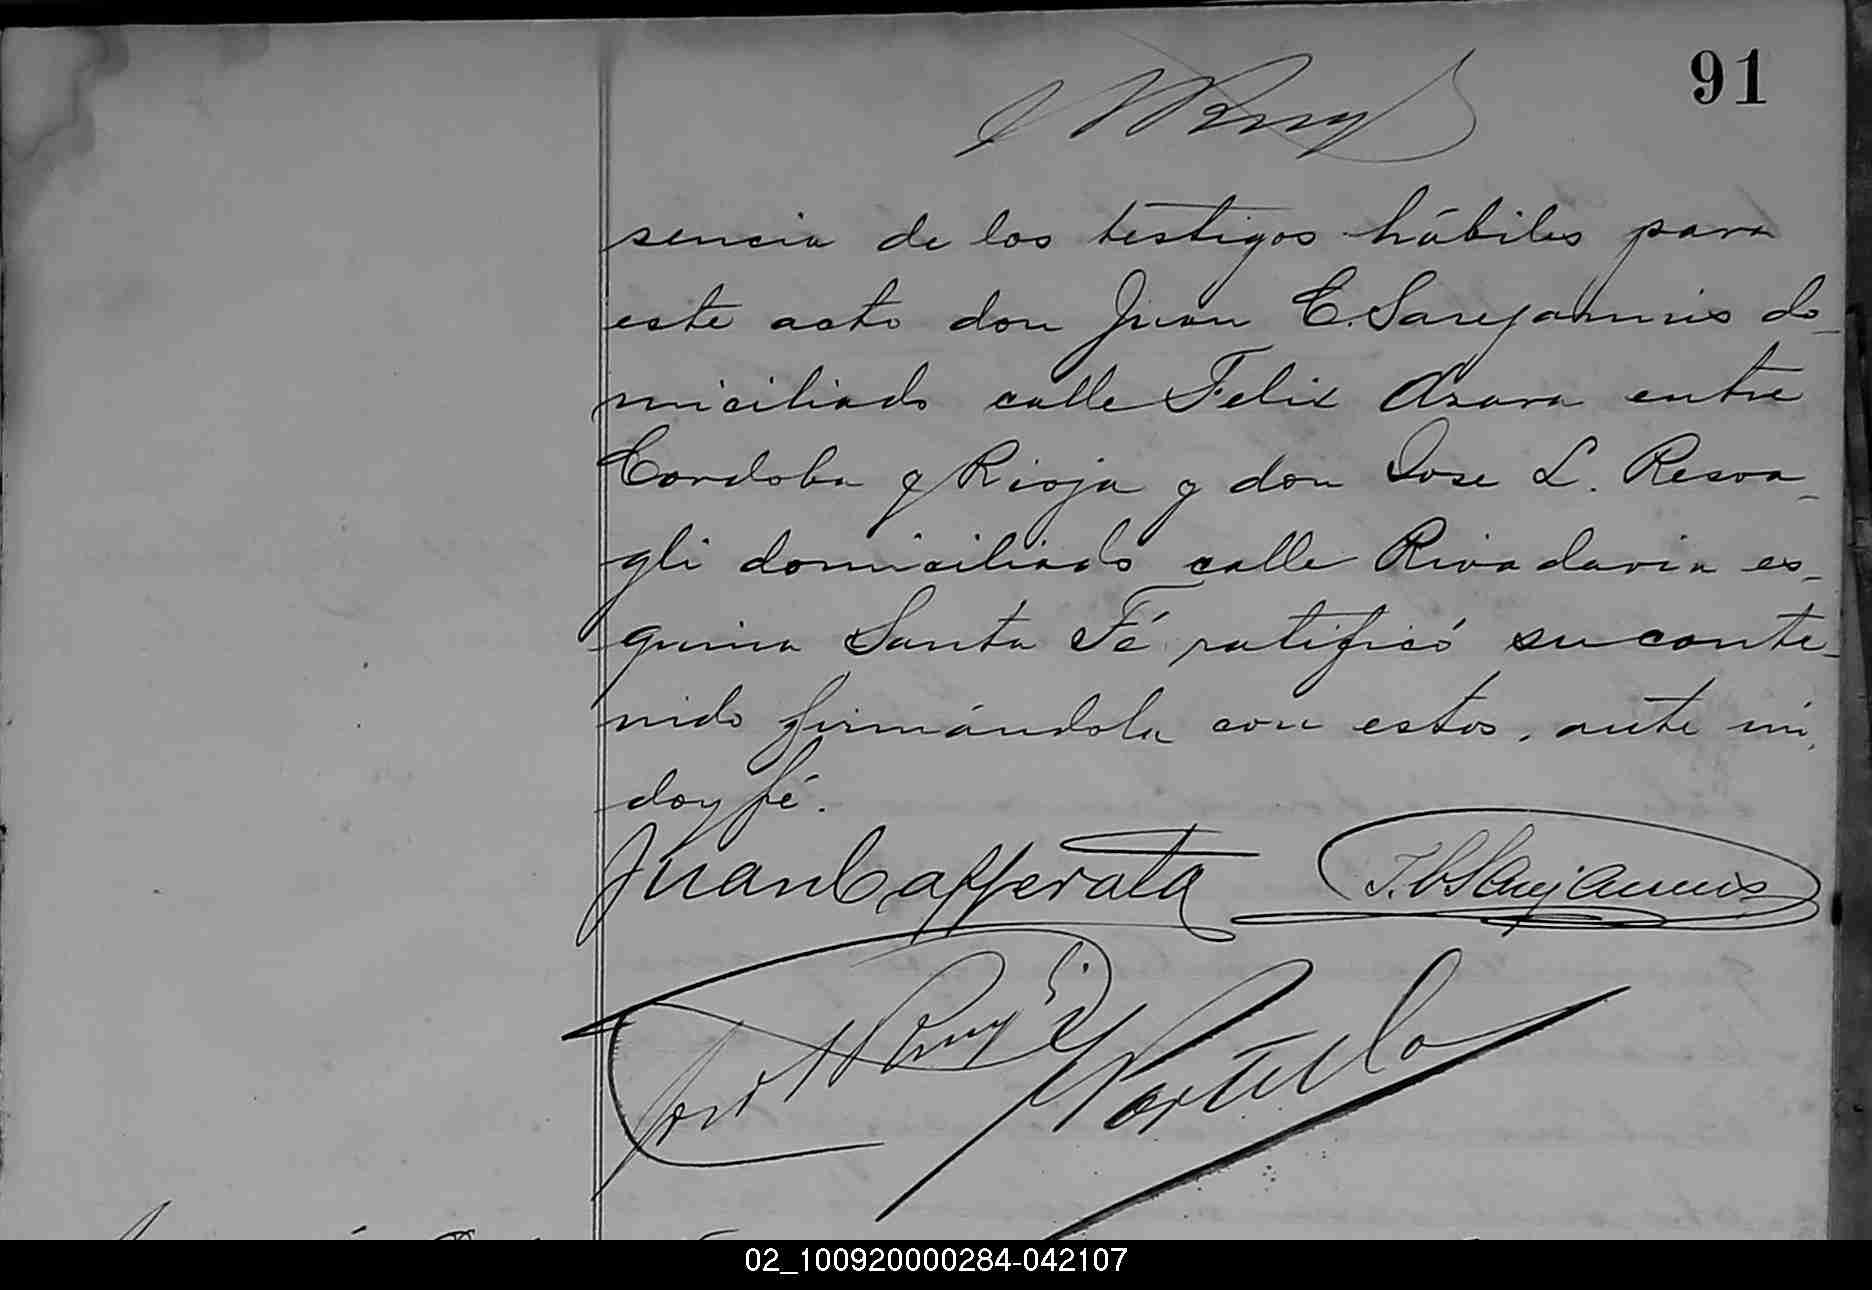 91
sencia de los testigos hábiles para
este acto don Juan C. Sanejamnis do-
miciliado calle Felix Azara entre
Cordoba y Rioja y don Jose L. Resoa-
gli domiciliado calle Rivadavia es-
quina Santa Fé ratificó su conte-
nido firmándola con estos, ante mi,
doy fé.
Juan Cafferata
02_100920000284-042107